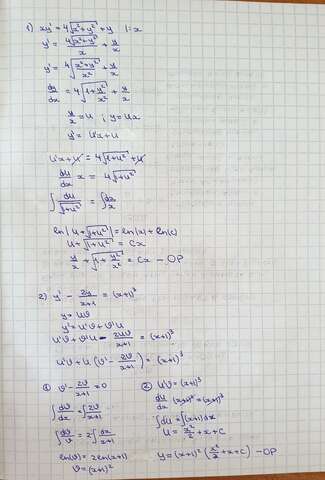 1) xy' = 4√(x²+y²) + y |:x
y' = 4√(x²+y²)/x + y/x
y' = 4√((x²+y²)/x²) + y/x
dy/dx = 4√(1+u²) + y/x
y/x = u ; y = ux
y' = u'x+u
u'x+u = 4√(1+u²) + u
du/dx x = 4√(1+u²)
∫ du/√(1+u²) = ∫ dx/x
ln|u+√(1+u²)| = ln|x| + ln|c|
u+√(1+u²) = Cx
y/x + √(1+y²/x²) = Cx - OP
2) y' - 2y/(x+1) = (x+1)³
y = uv
y' = u'v + v'u
u'v + v'u - 2uv/(x+1) = (x+1)³
u'v + u(v' - 2v/(x+1)) = (x+1)³
① v' - 2v/(x+1) = 0
∫ dv/dx = ∫ 2v/(x+1)
∫ dv/v = 2∫ dx/(x+1)
ln(v) = 2ln(x+1)
v = (x+1)²
② u'v = (x+1)³
du/dx (x+1)² = (x+1)³
∫du = ∫(x+1)dx
u = x²/2 + x + C
y = (x+1)² (x²/2 + x + C) - OP